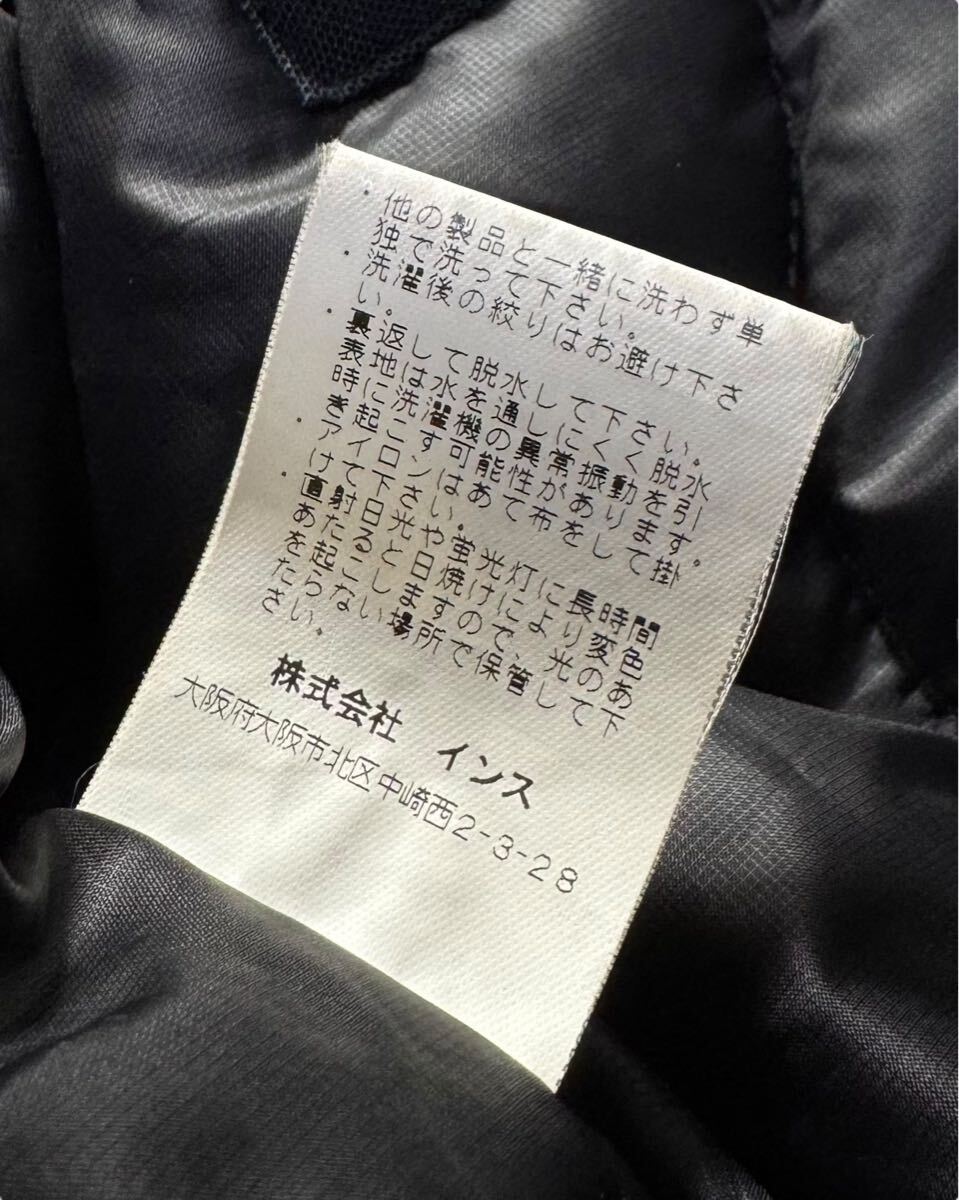 ・他の製品と一緒に洗わず単
独で洗って下さい。
・洗濯後の絞りはお避け下さ
い。
・裏返して脱水して下さい。
表地は水を通しにくく脱水
時に洗濯機の異常振動を引
き起こす可能性があります。
・アイロンはあて布をして掛
けて下さい。
・直射日光や蛍光灯に長時間
あたると日焼けにより変色
を起こしますので、光のあ
たらない場所で保管して下
さい。
株式会社 インス
大阪府大阪市北区中崎西2-3-28